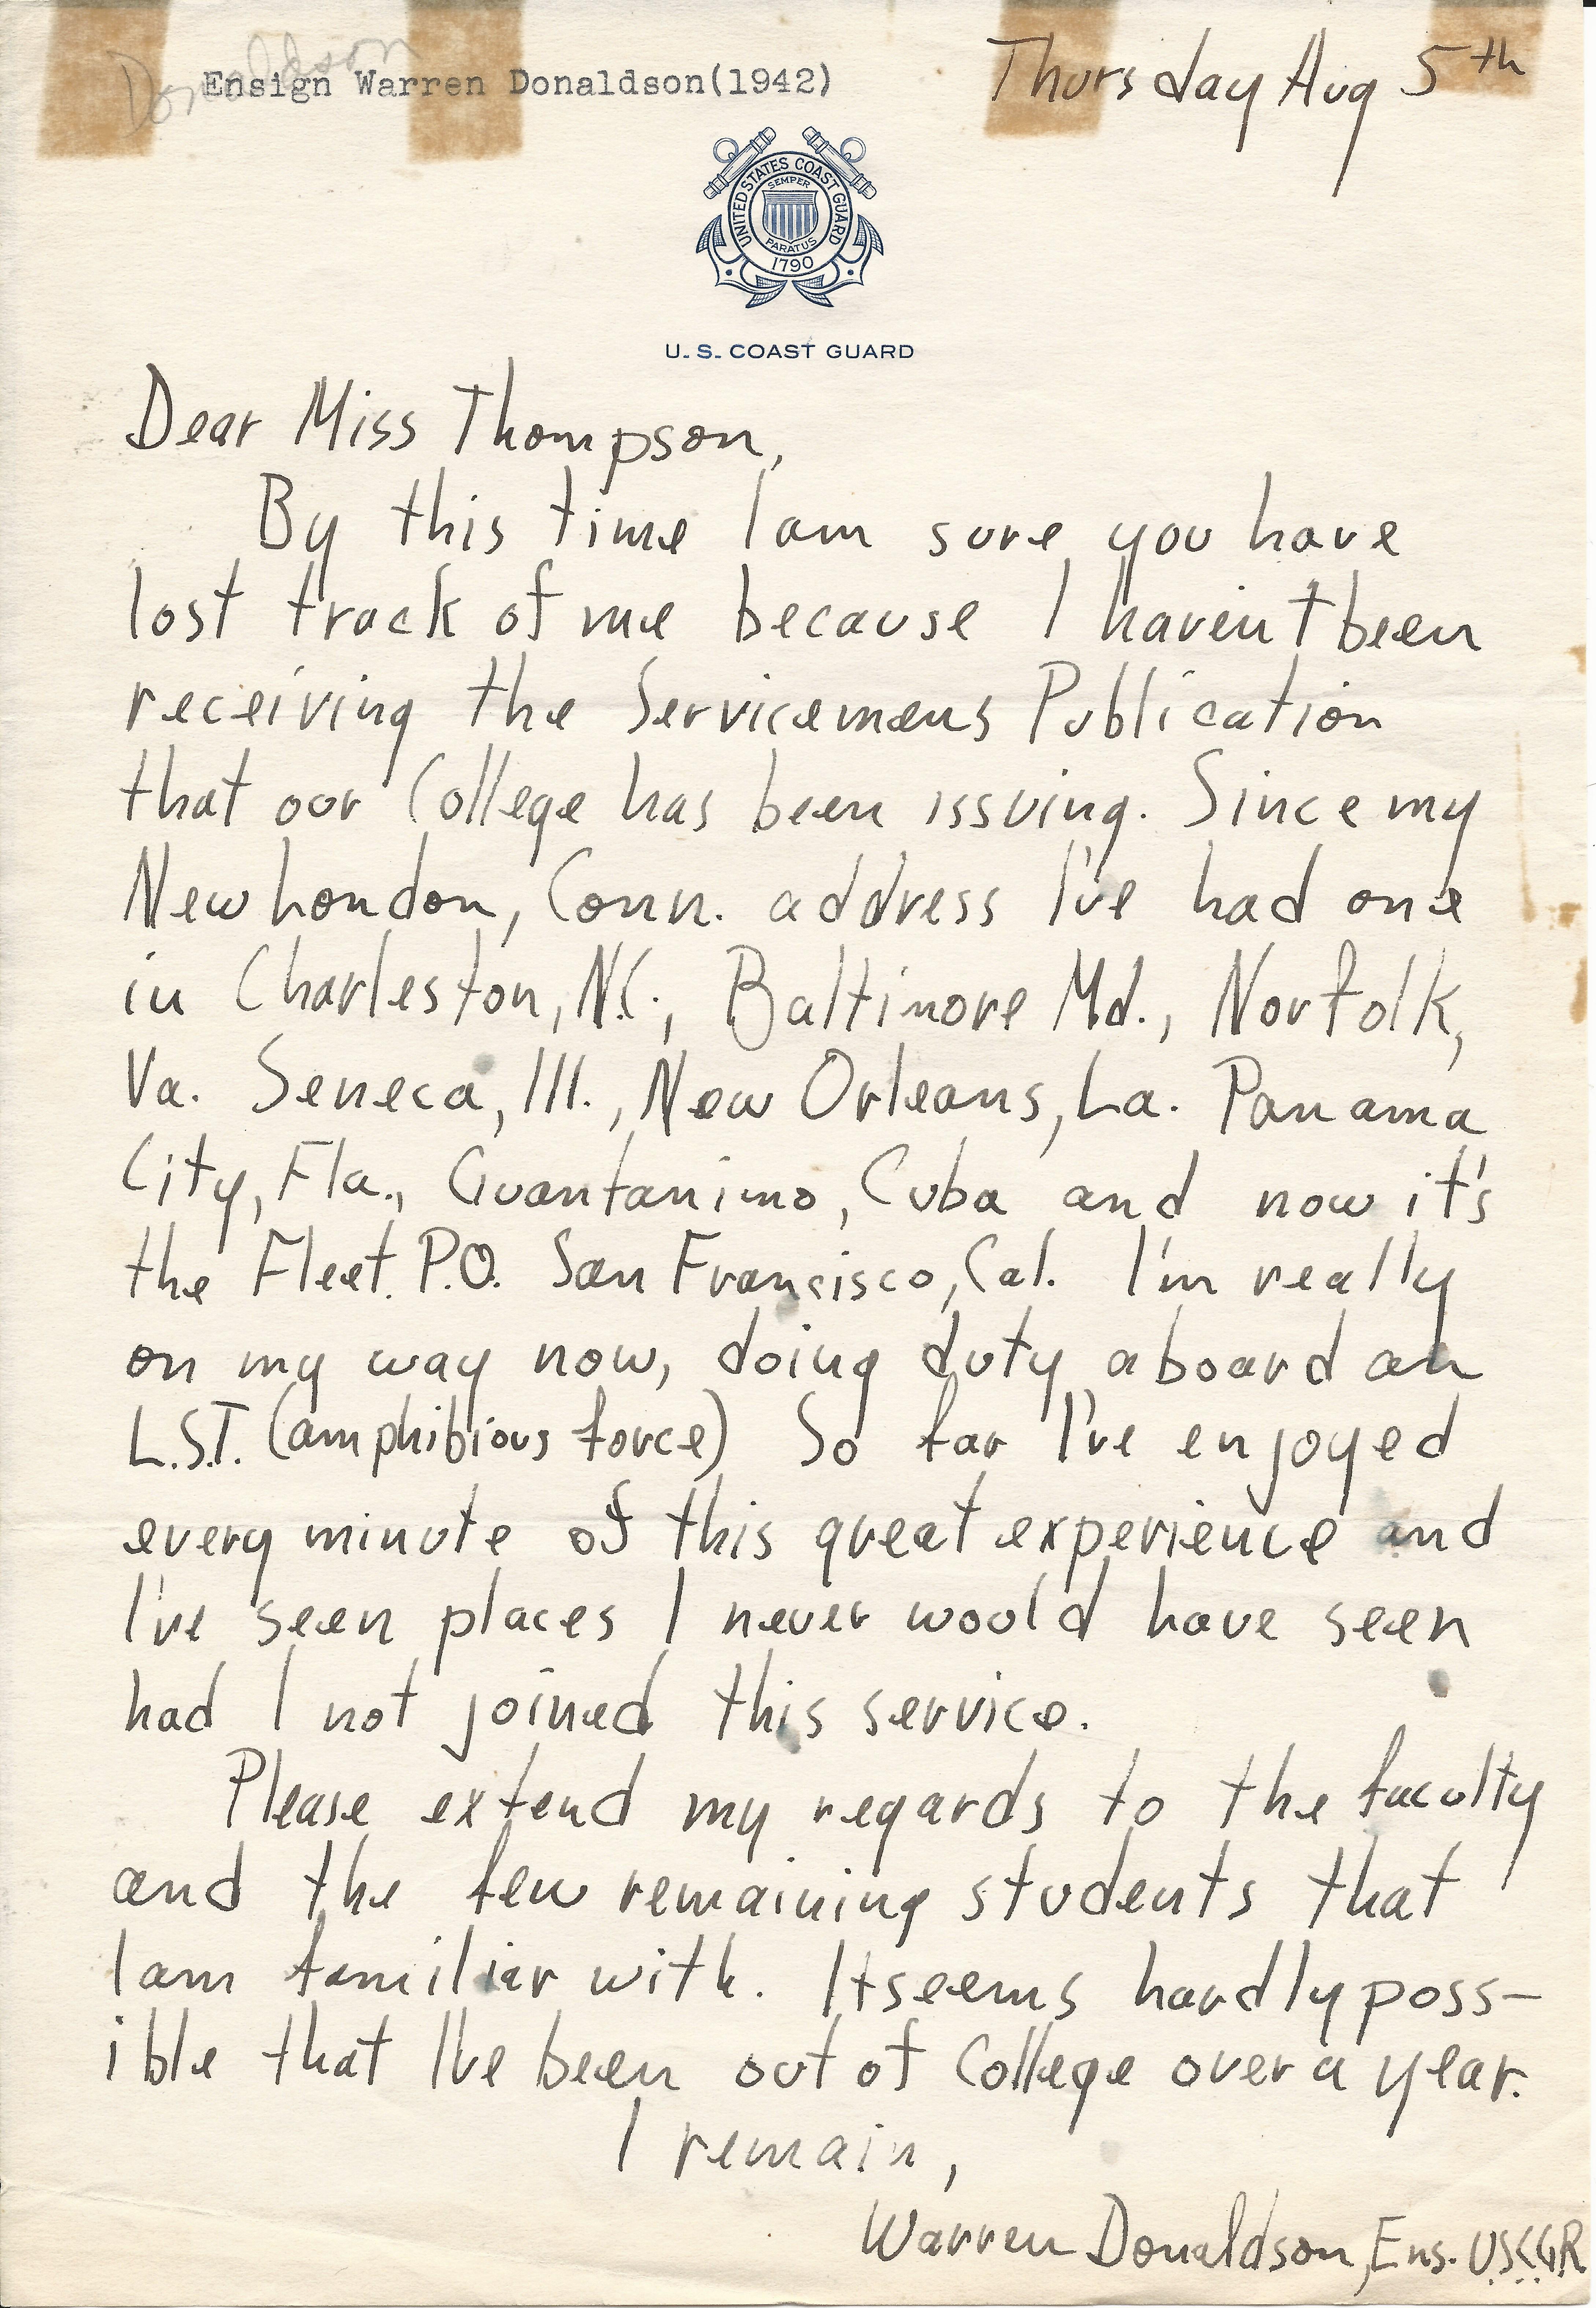 Donaldson
Ensign Warren Donaldson(1942)
Thursday Aug 5th
UNITED STATES COAST GUARD
SEMPER
PARATUS
1790
U. S. COAST GUARD
Dear Miss Thompson,
By this time I am sure you have
lost track of me because I haven't been
receiving the Servicemens Publication
that our College has been issuing. Since my
New London, Conn. address I've had one
in Charleston, N.C., Baltimore Md., Norfolk,
Va. Seneca, Ill., New Orleans, La. Panama
City, Fla., Guantanimo, Cuba and now it's
the Fleet. P.O. San Francisco, Cal. I'm really
on my way now, doing duty aboard an
L.S.T. (amphibious force) So far I've enjoyed
every minute of this great experience and
I've seen places I never would have seen
had I not joined this service.
Please extend my regards to the faculty
and the few remaining students that
I am familiar with. It seems hardly poss-
ible that I've been out of College over a year.
I remain,
Warren Donaldson, Ens. U.S.C.G.R.